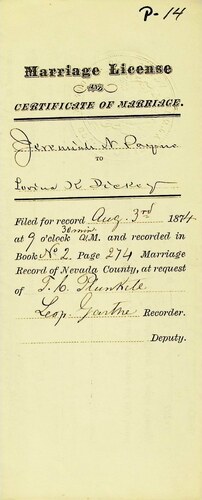 P-14
Marriage License
AND
CERTIFICATE OF MARRIAGE.
Jeremiah N. Payne
TO
Lovina K. Dickey
Filed for record Aug 3rd 1874
at 9 o'clock 30 min A.M. and recorded in
Book No 2. Page 274 Marriage
Record of Nevada County, at request
of T. C. Plunkett
Leop. Garthe Recorder.
Deputy.